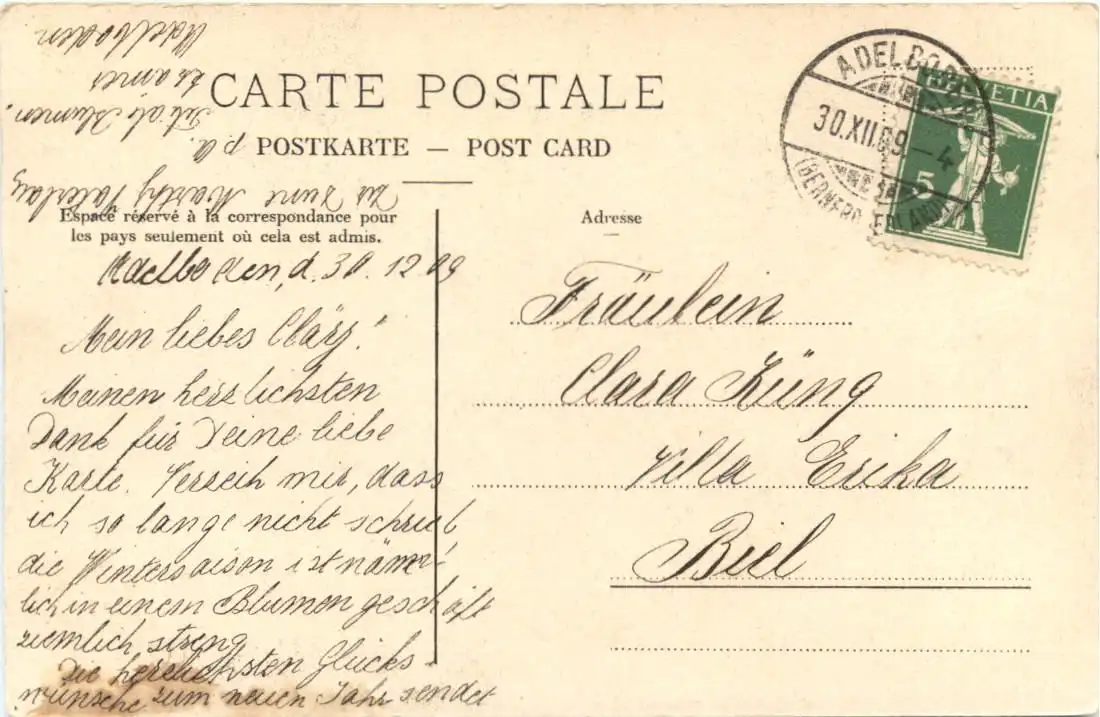 CARTE POSTALE
POSTKARTE — POST CARD
Espace réservé à la correspondance pour
les pays seulement où cela est admis.
Adresse
ADELBODEN
30.XII.09.–4
(BERNER OBERLAND)
HELVETIA
5
Adelboden, d. 30. 12 09
Mein liebes Cläry!
Meinen herzlichsten
Dank für Deine liebe
Karte. Verzeih mir, dass
ich so lange nicht schrieb,
die Wintersaison ist näm-
lich in einem Blumengeschäft
ziemlich streng
Die herzlichsten Glücks-
wünsche zum neuen Jahr sendet
Marthy
p A.
Blumen.
Adelboden
Fräulein
Clara Küng
Villa Erika
Biel